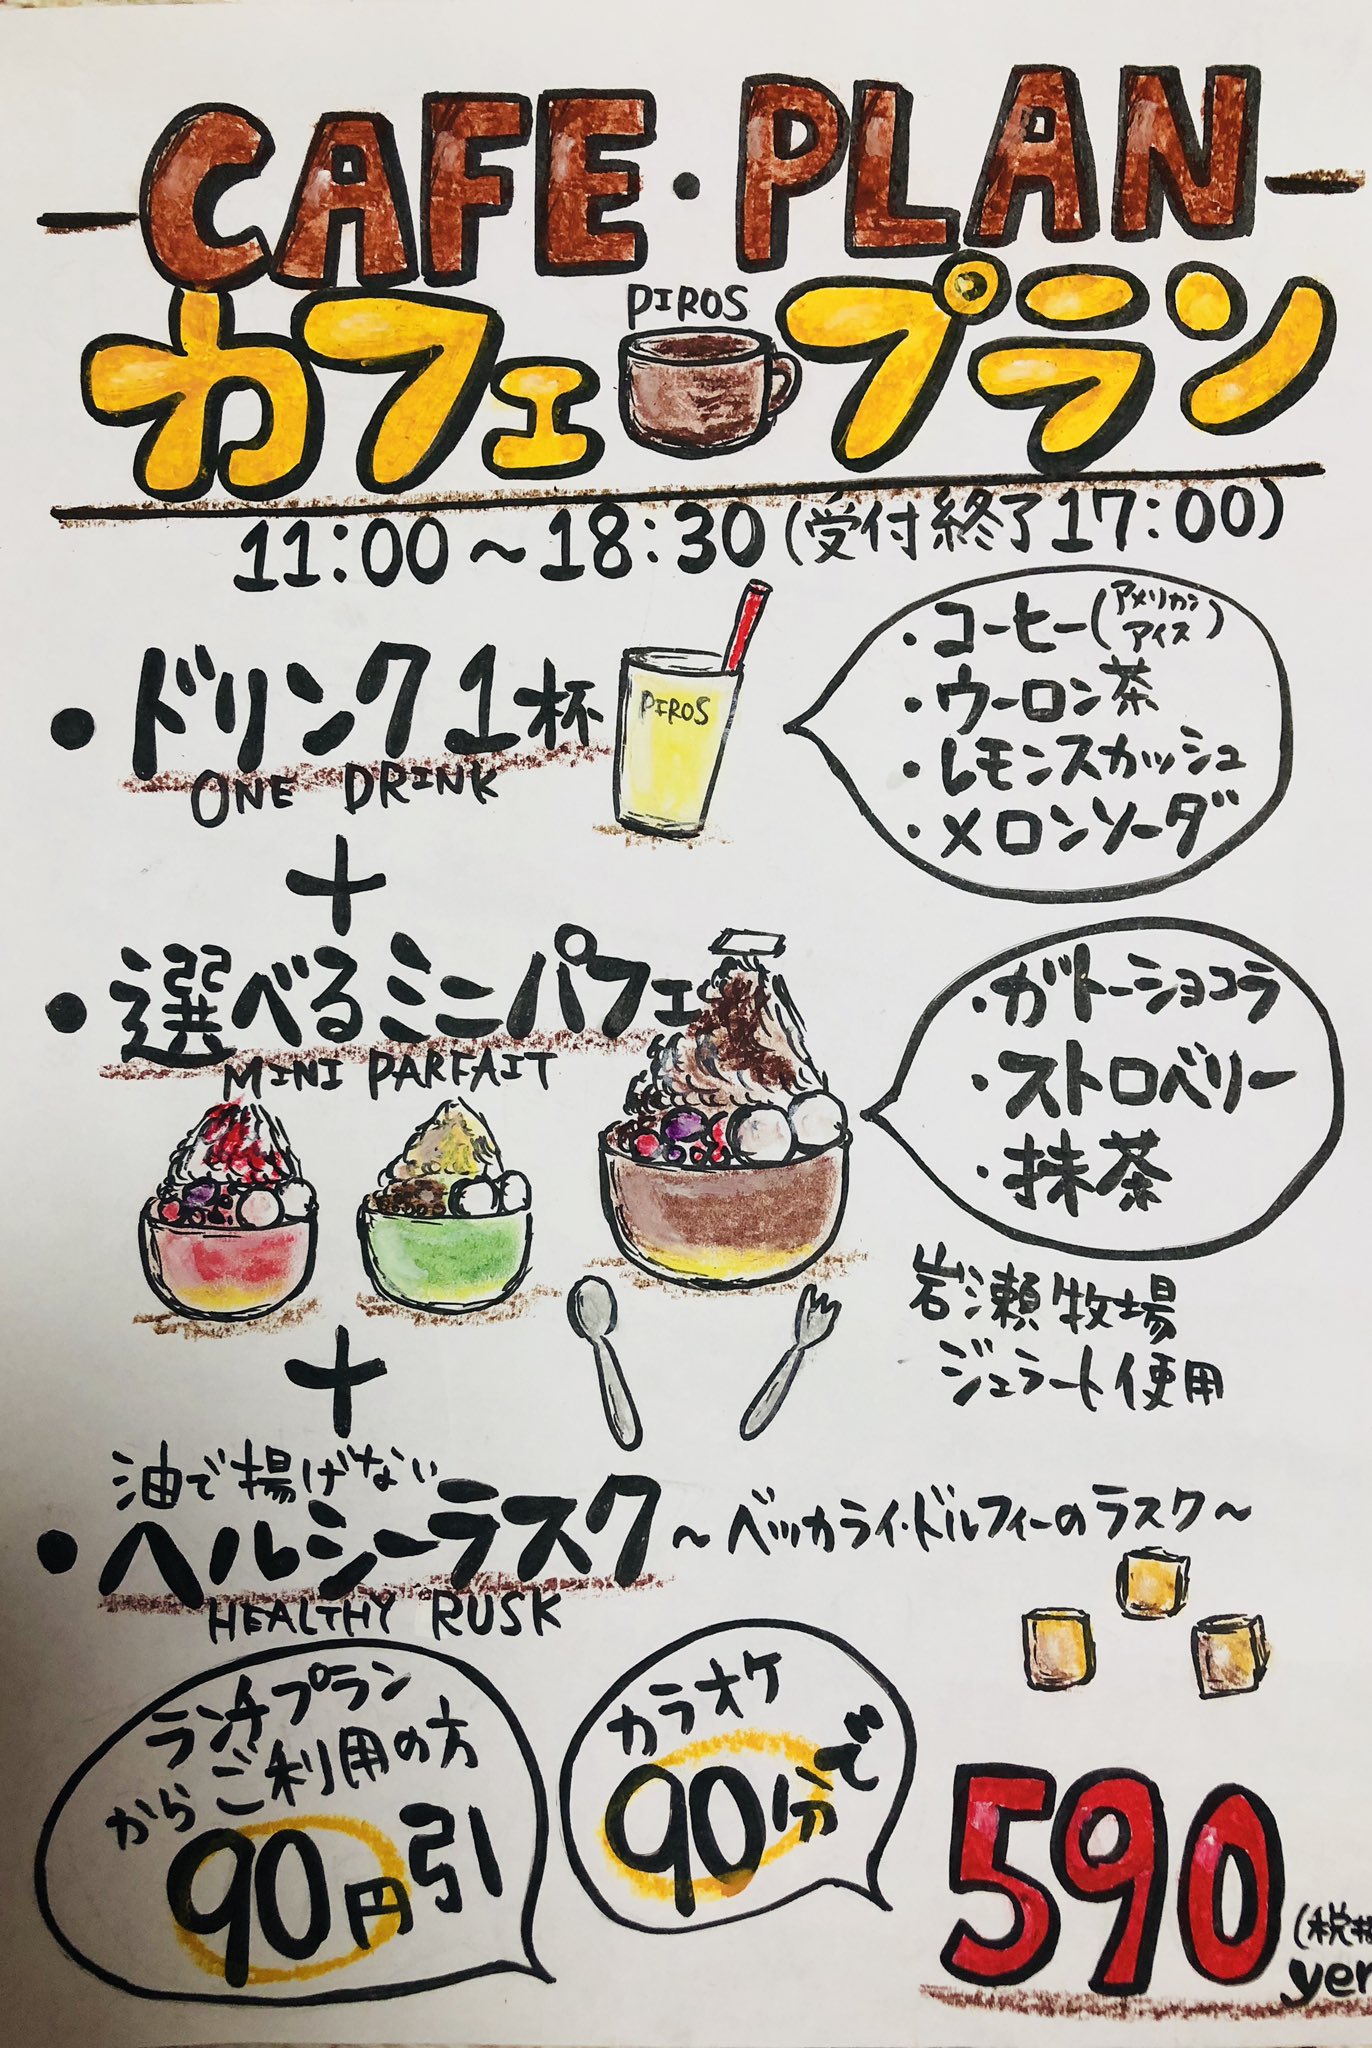 CAFE・PLAN
カフェ プラン
PIROS
11:00～18:30(受付終了17:00)
・ドリンク1杯
ONE DRINK
PIROS
・コーヒー(アメリカン アイス)
・ウーロン茶
・レモンスカッシュ
・メロンソーダ
+
・選べるミニパフェ
MINI PARFAIT
・ガトーショコラ
・ストロベリー
・抹茶
岩瀬牧場
ジェラート使用
+
油で揚げない
・ヘルシーラスク ～ベッカライ・ドルフィーのラスク～
HEALTHY RUSK
ランチプラン
からご利用の方
90円引
カラオケ
90分で
590
(税
yen